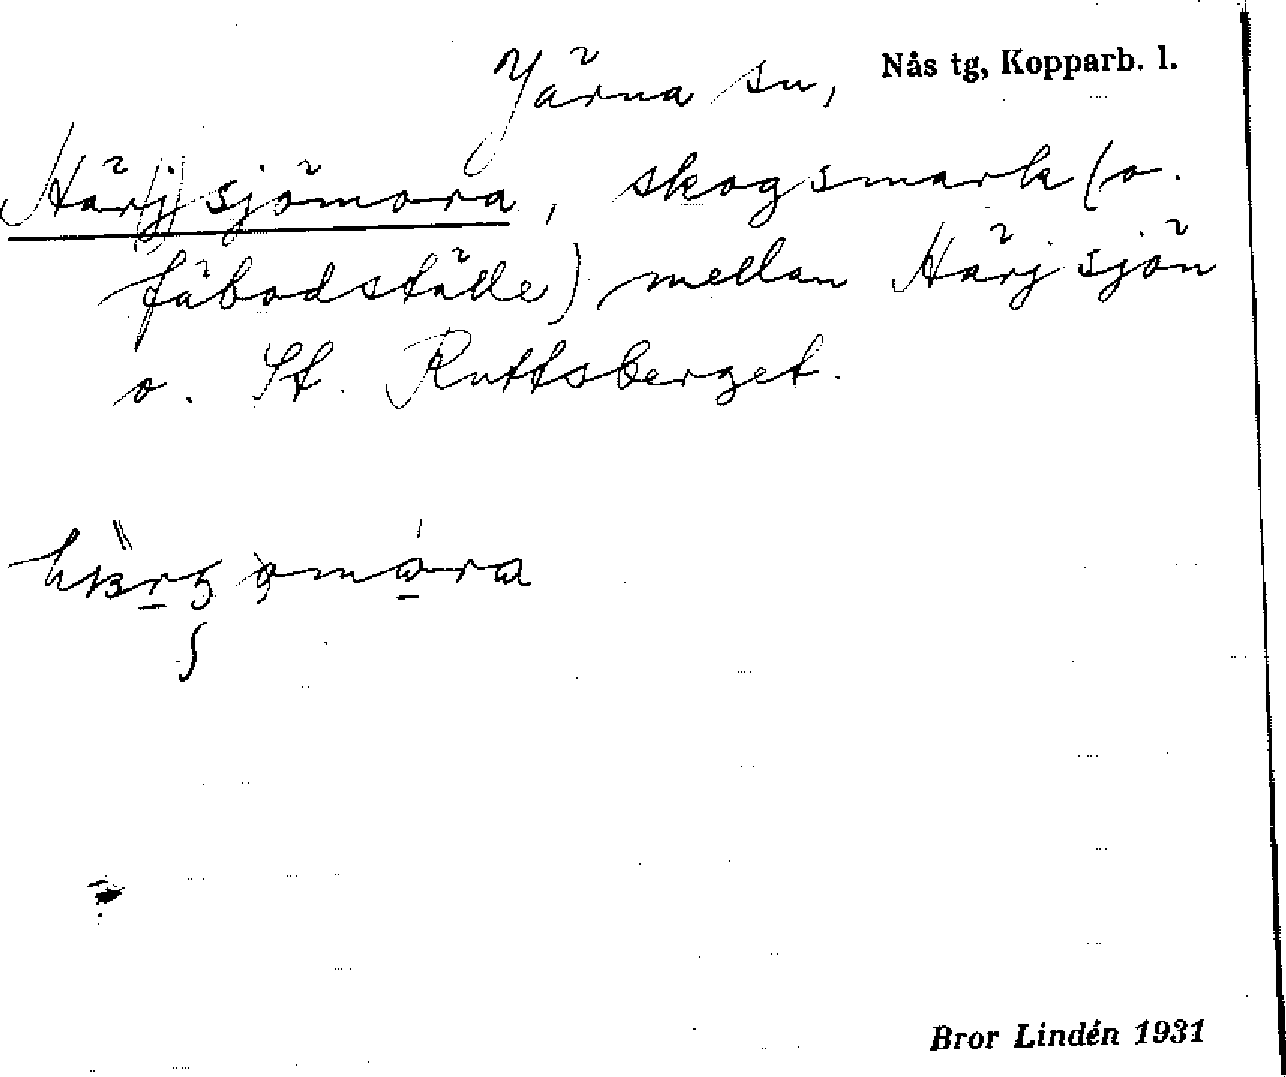 Järna sn, Nås tg, Kopparb. l.
Här(j)sjömora, skogsmark (o.
fäbodställe) mellan Härjsjön
o. St. Ruttsberget.
Bror Lindén 1931